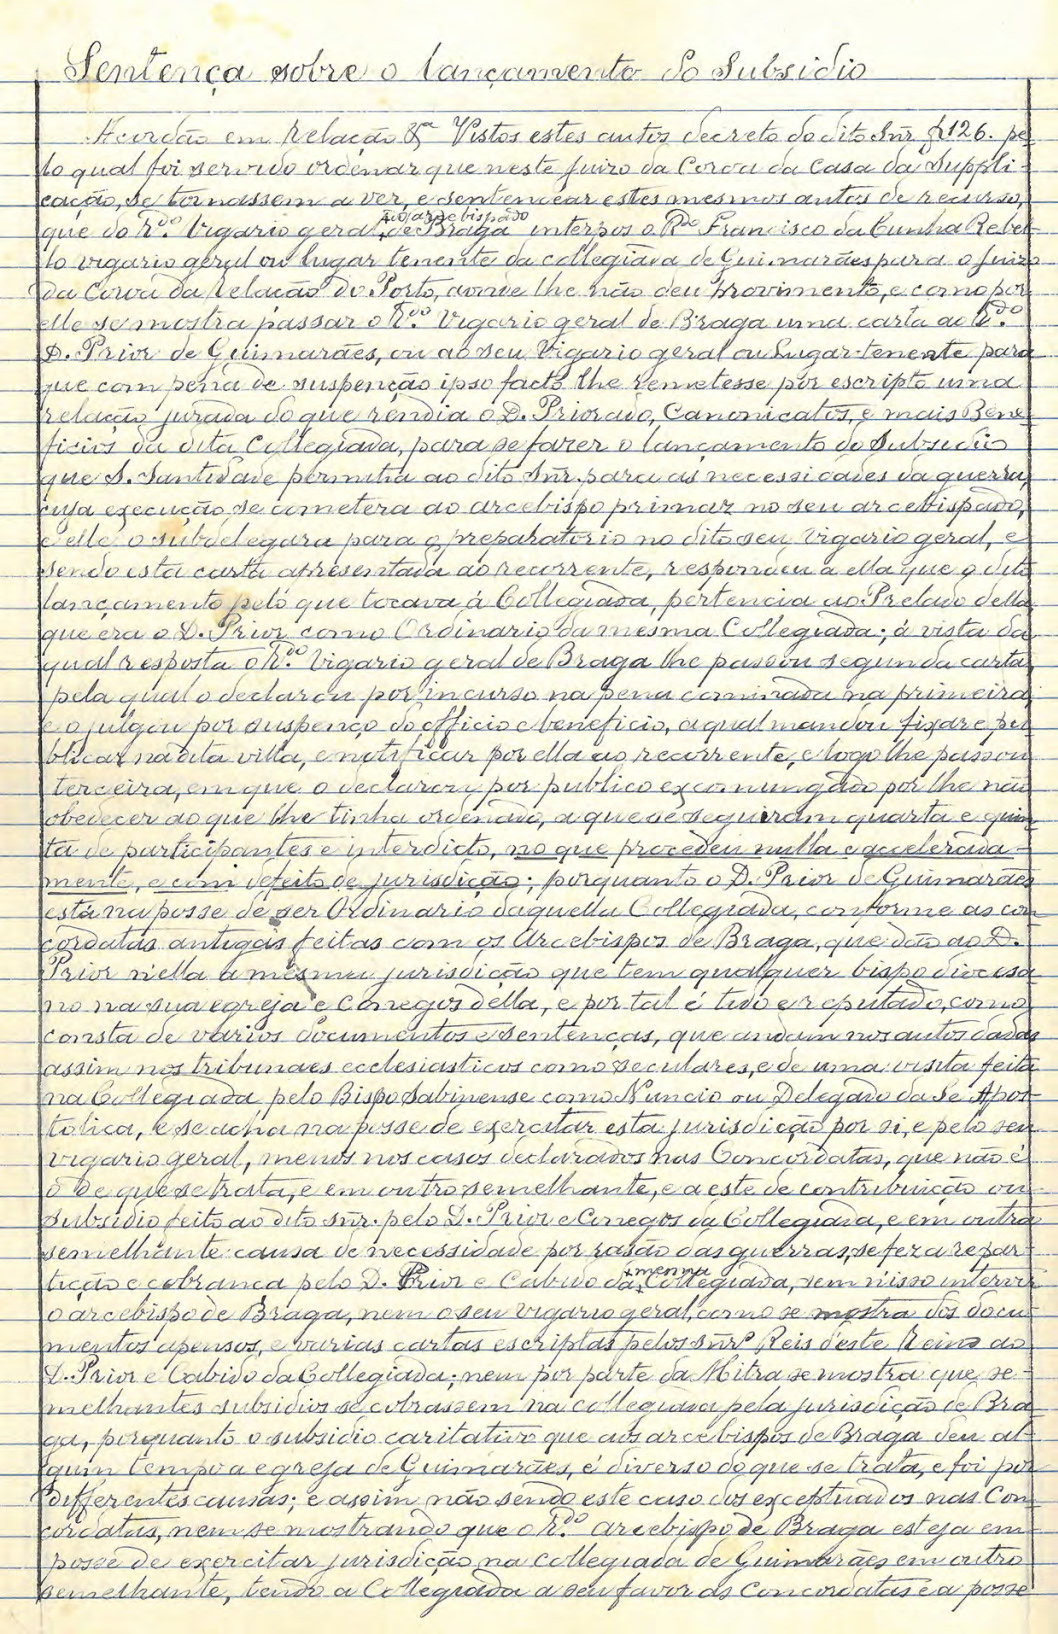 Sentença sobre o lançamento do Subsidio
Acordão em Relação &ª Vistos estes autos decreto do dito Snr. f. 126. pe-
lo qual foi servido ordenar que neste Juizo da Coroa da Casa da Suppli-
cação, se tornassem a ver, e sentencear estes mesmos autos de recurso,
que do R.do Vigario geral do arcebispado de Braga interpos o R.do Francisco da Cunha Rebel-
lo vigario geral ou lugar tenente da collegiada de Guimarães para o Juizo
da Coroa da Relação do Porto, aonde lhe não deu provimento, e como por
elle se mostra passar o R.do Vigario geral de Braga uma carta ao R.do
D. Prior de Guimarães, ou ao seu Vigario geral ou Lugar-tenente para
que com pena de suspenção ipso facto lhe remetesse por escripto uma
relação jurada do que rendia o D. Priorado, Canonicatos, e mais Bene-
ficios da dita Collegiada, para se fazer o lançamento do Subsidio
que S. Santidade permitia ao dito Snr. para as necessidades da guerra,
cuja execução se cometera ao arcebispo primaz no seu arcebispado,
e elle o subdelegara para o preparatorio no dito seu Vigario geral, e
sendo esta carta apresentada ao recorrente, respondeu a ella que o dito
lançamento pelo que tocava á Collegiada, pertencia ao Prelado della
que era o D. Prior como Ordinario da mesma Collegiada; á vista da
qual resposta o R.do Vigario geral de Braga lhe passou segunda carta
pela qual o declarou por incurso na pena cominada na primeira
e o julgou por suspenço do officio e beneficio, a qual mandou fixar e pu-
blicar na dita villa, e notificar por ella ao recorrente, e logo lhe passou
terceira, em que o declarou por publico excomungado por lhe não
obedecer ao que lhe tinha ordenado, a que se seguiram quarta e quin-
ta de participantes e interdicto, no que procedeu nulla e accelerada-
mente, e com defeito de jurisdição; porquanto o D. Prior de Guimarães
está na posse de ser Ordinario daquella Collegiada, conforme as con-
cordatas antigas feitas com os Arcebispos de Braga, que dão ao D.
Prior n'ella a mesma jurisdição que tem qualquer bispo diocesa-
no na sua egreja e Conegos della, e por tal é tido e reputado, como
consta de varios documentos e sentenças, que andam nos autos dadas
assim nos tribunaes ecclesiasticos como seculares, e de uma visita feita
na Collegiada pelo Bispo Sabinense como Nuncio ou Delegado da Sé Apos-
tolica, e se acha na posse de exercitar esta jurisdição por si, e pelo seu
vigario geral, menos nos casos declarados nas Concordatas, que não é
o de que se trata, e em outro semelhante, e a este de contribuição ou
subsidio feito ao dito snr. pelo D. Prior e Conegos da Collegiada, e em outra
semelhante causa de necessidade por rasão das guerras, se fez a repar-
tição e cobrança pelo D. Prior e Cabido da mesma Collegiada, sem n'isso intervir
o arcebispo de Braga, nem o seu vigario geral, como se mostra dos docu-
mentos apensos, e varias cartas escriptas pelos snrs. Reis d'este Reino ao
D. Prior e Cabido da Collegiada; nem por parte da Mitra se mostra que se-
melhantes subsidios se cobrassem na collegiada pela jurisdição de Bra-
ga, porquanto o subsidio caritativo que aos arcebispos de Braga deu al-
gum tempo a egreja de Guimarães, é diverso do que se trata, e foi por
differentes causas; e assim não sendo este caso dos exceptuados nas Con-
cordatas, nem se mostrando que o R.do arcebispo de Braga esteja em
posse de exercitar jurisdição na collegiada de Guimarães em outro
semelhante, tendo a Collegiada a seu favor as concordatas e a posse